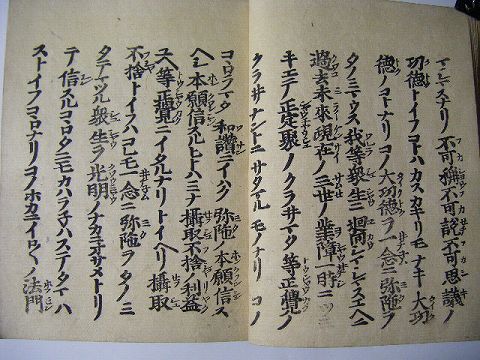 マシマスナリ不可稱不可說不可思議ノ
功徳トイフコトハカスカキリモナキ大功
徳ノコトナリコノ大功徳ヲ一念ニ弥陀ヲ
タノミマウス我等衆生ニ廻向シマシマスユヘニ
過去未來現在ノ三世ノ業障一時ニ
キエテ正定聚ノクラヰマタ等正覺ノ
クラヰナントニサタマルモノナリコノ
コヽロヲマタ和讃ニイハク弥陀ノ本願信ス
ヘシ本願信スルヒトハミナ攝取不捨ノ利益
ユヘ等正覺ニイタルナリトイヘリ攝取
不捨トイフハコレモ一念ニ弥陀ヲタノミ
タテマツル衆生ヲ光明ノナカニオサメトリ
テ信スルコヽロタニモカハラネハステタマハ
ストイフコヽロナリコノホカニイロ〱ノ法門